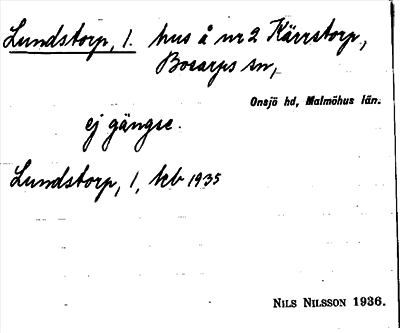 Lundstorp, 1. hus å nr 2 Kärrstorp,
Bosarps sn,
Onsjö hd, Malmöhus län.
ej gängse.
Lundstorp, 1, kb 1935
NILS NILSSON 1936.